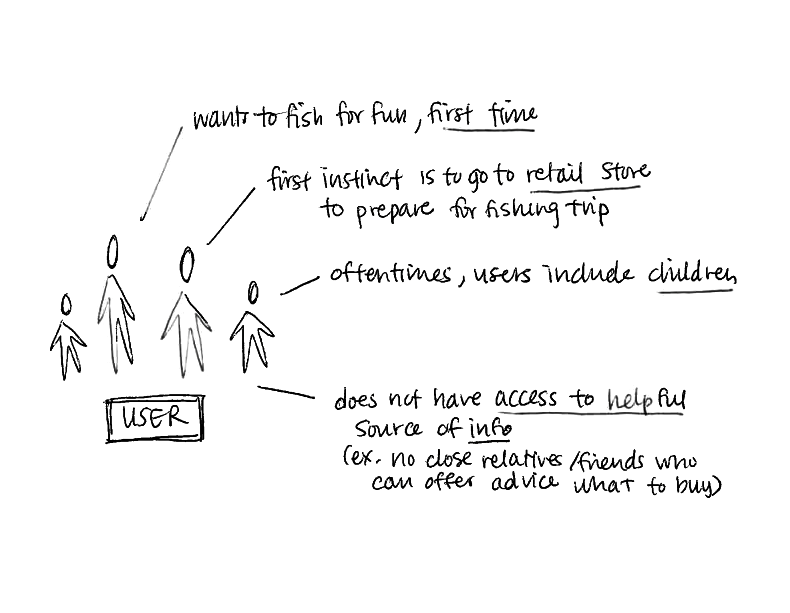 wants to fish for fun, first time
first instinct is to go to retail store
to prepare for fishing trip
oftentimes, users include children
does not have access to helpful
source of info
(ex. no close relatives/friends who
can offer advice what to buy)
USER